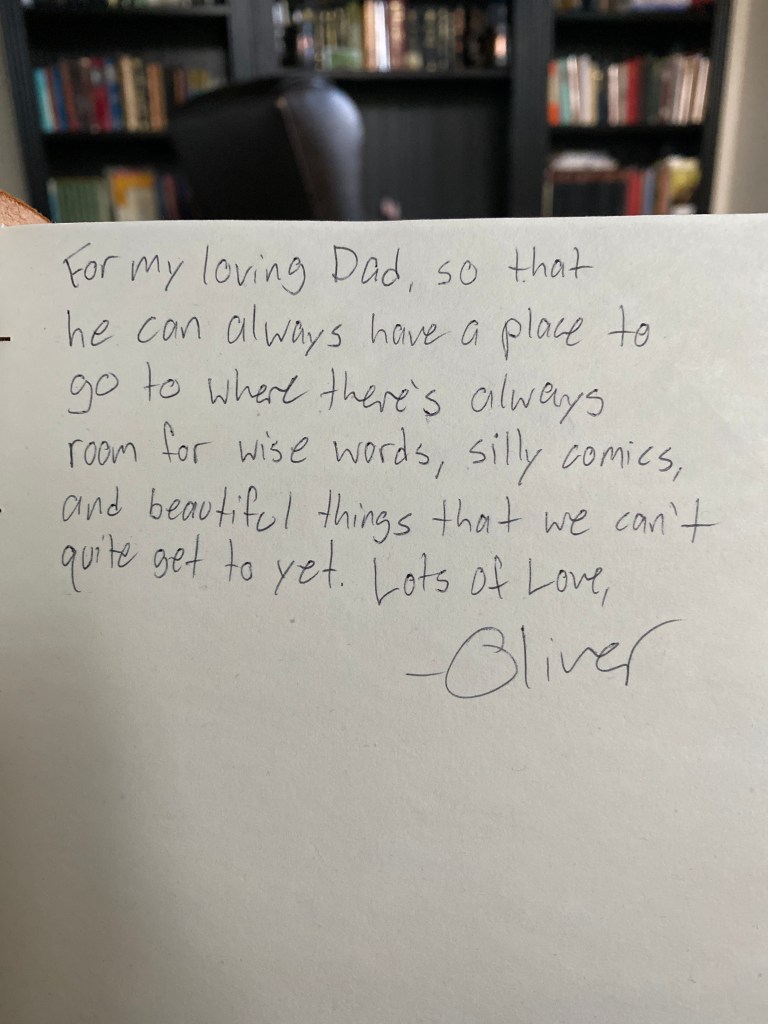 For my loving Dad, so that
he can always have a place to
go to where there's always
room for wise words, silly comics,
and beautiful things that we can't
quite get to yet. Lots of Love,
-Oliver